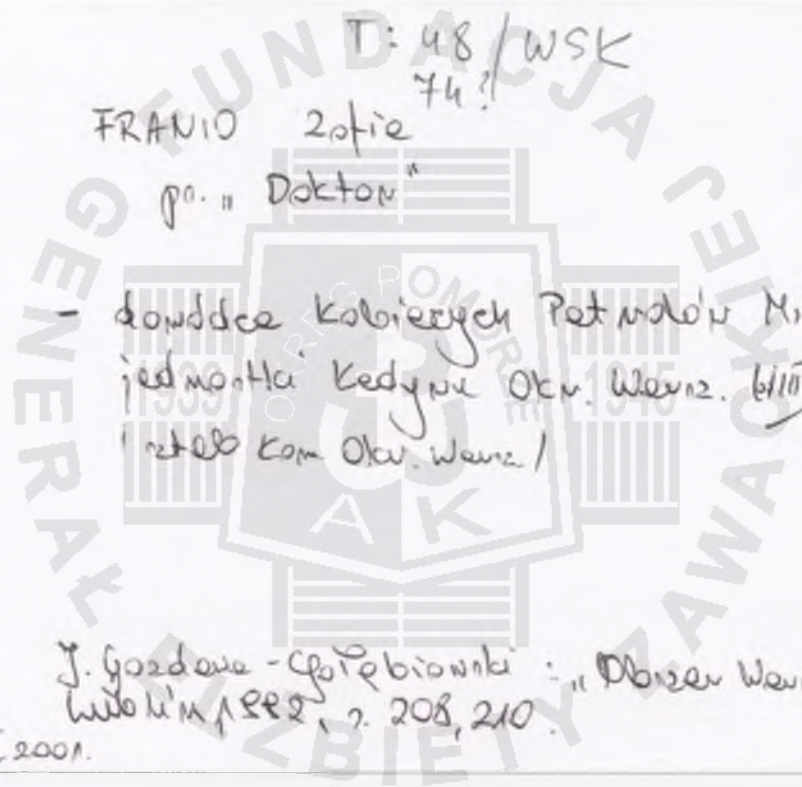 T: 48 / WSK
74?
FRANIO Zofia
ps. „Doktor"
- dowódca Kobiecych Patroli Mi
jednostki Kedywu Okr. Warsz. 6/III
i sztab Kom Okr. Warsz/
J. Gozdawa-Gołębiowski: „Obszar War
Lublin 1992, s. 208, 210.
2001.
FUNDACJA GENERAŁ ELŻBIETY ZAWACKIEJ
OKRĘG POMORZE
1939 1945
AK